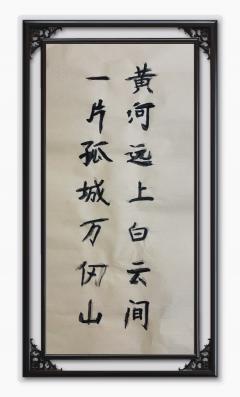 黄河远上白云间
一片孤城万仞山